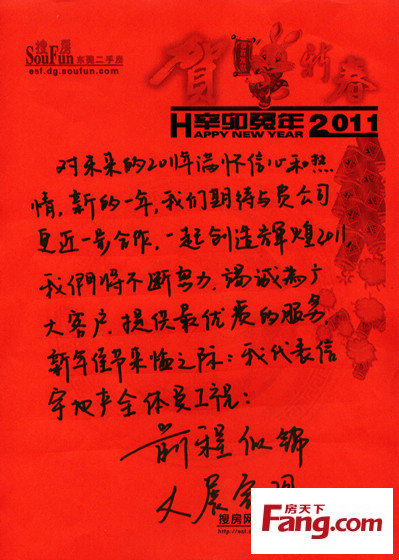 搜房
SouFun 东莞二手房
esf.dg.soufun.com
贺 新春
辛卯贺年
HAPPY NEW YEAR 2011
对未来的2011年满怀信心和热
情,新的一年,我们期待与贵公司
更近一步合作,一起创造辉煌2011
我們将不断努力,竭诚为广
大客户提供最优质的服务,
新年佳节来临之际:我代表信
宇地产全体员工祝:
前程似锦
大展宏图
搜房网
房天下
Fang.com